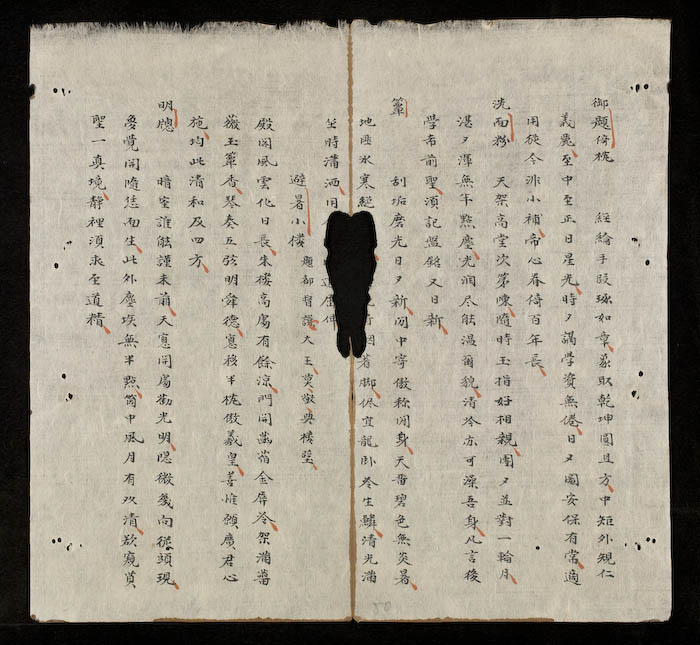 御題倚枕 經綸手段琢如章象取乾坤圓且方中矩外規仁
義麗至中至正日星光時夕講學資無倦日夕圖安保有常適
用從今非小補帝心眷倚百年長
洗面粉 天架高堂次第陳隨時玉指好相親團夕並對一輪月
湛夕渾無半點塵光潤尽能温爾貌清冷亦可澡吾身凡言後
學希前聖須記盤銘又日新
簟 刮垢磨光日夕新閒中寄傲称閒身天番碧色無炎暑
地匝氷寒絕 著脚保宜龍卧冷生鱗清光滿
坐時瀟洒旧
避暑小樓 題都督謹大王莫敬典樓壁
殿閣風雲化日長朱樓高處有餘涼門開菡萏金屏冷架滿薔
薇玉簟香琴奏五弦明舜德窓移半枕傲羲皇善惟願廣君心
施均此清和及四方
明牕 暗室誰能謹未萌天窓開處勸光明隱微幾向從頭現
夢覺開隨恁而生此外塵埃無半點箇中風月有双清欲窺實
聖一真境静裡須求至道精